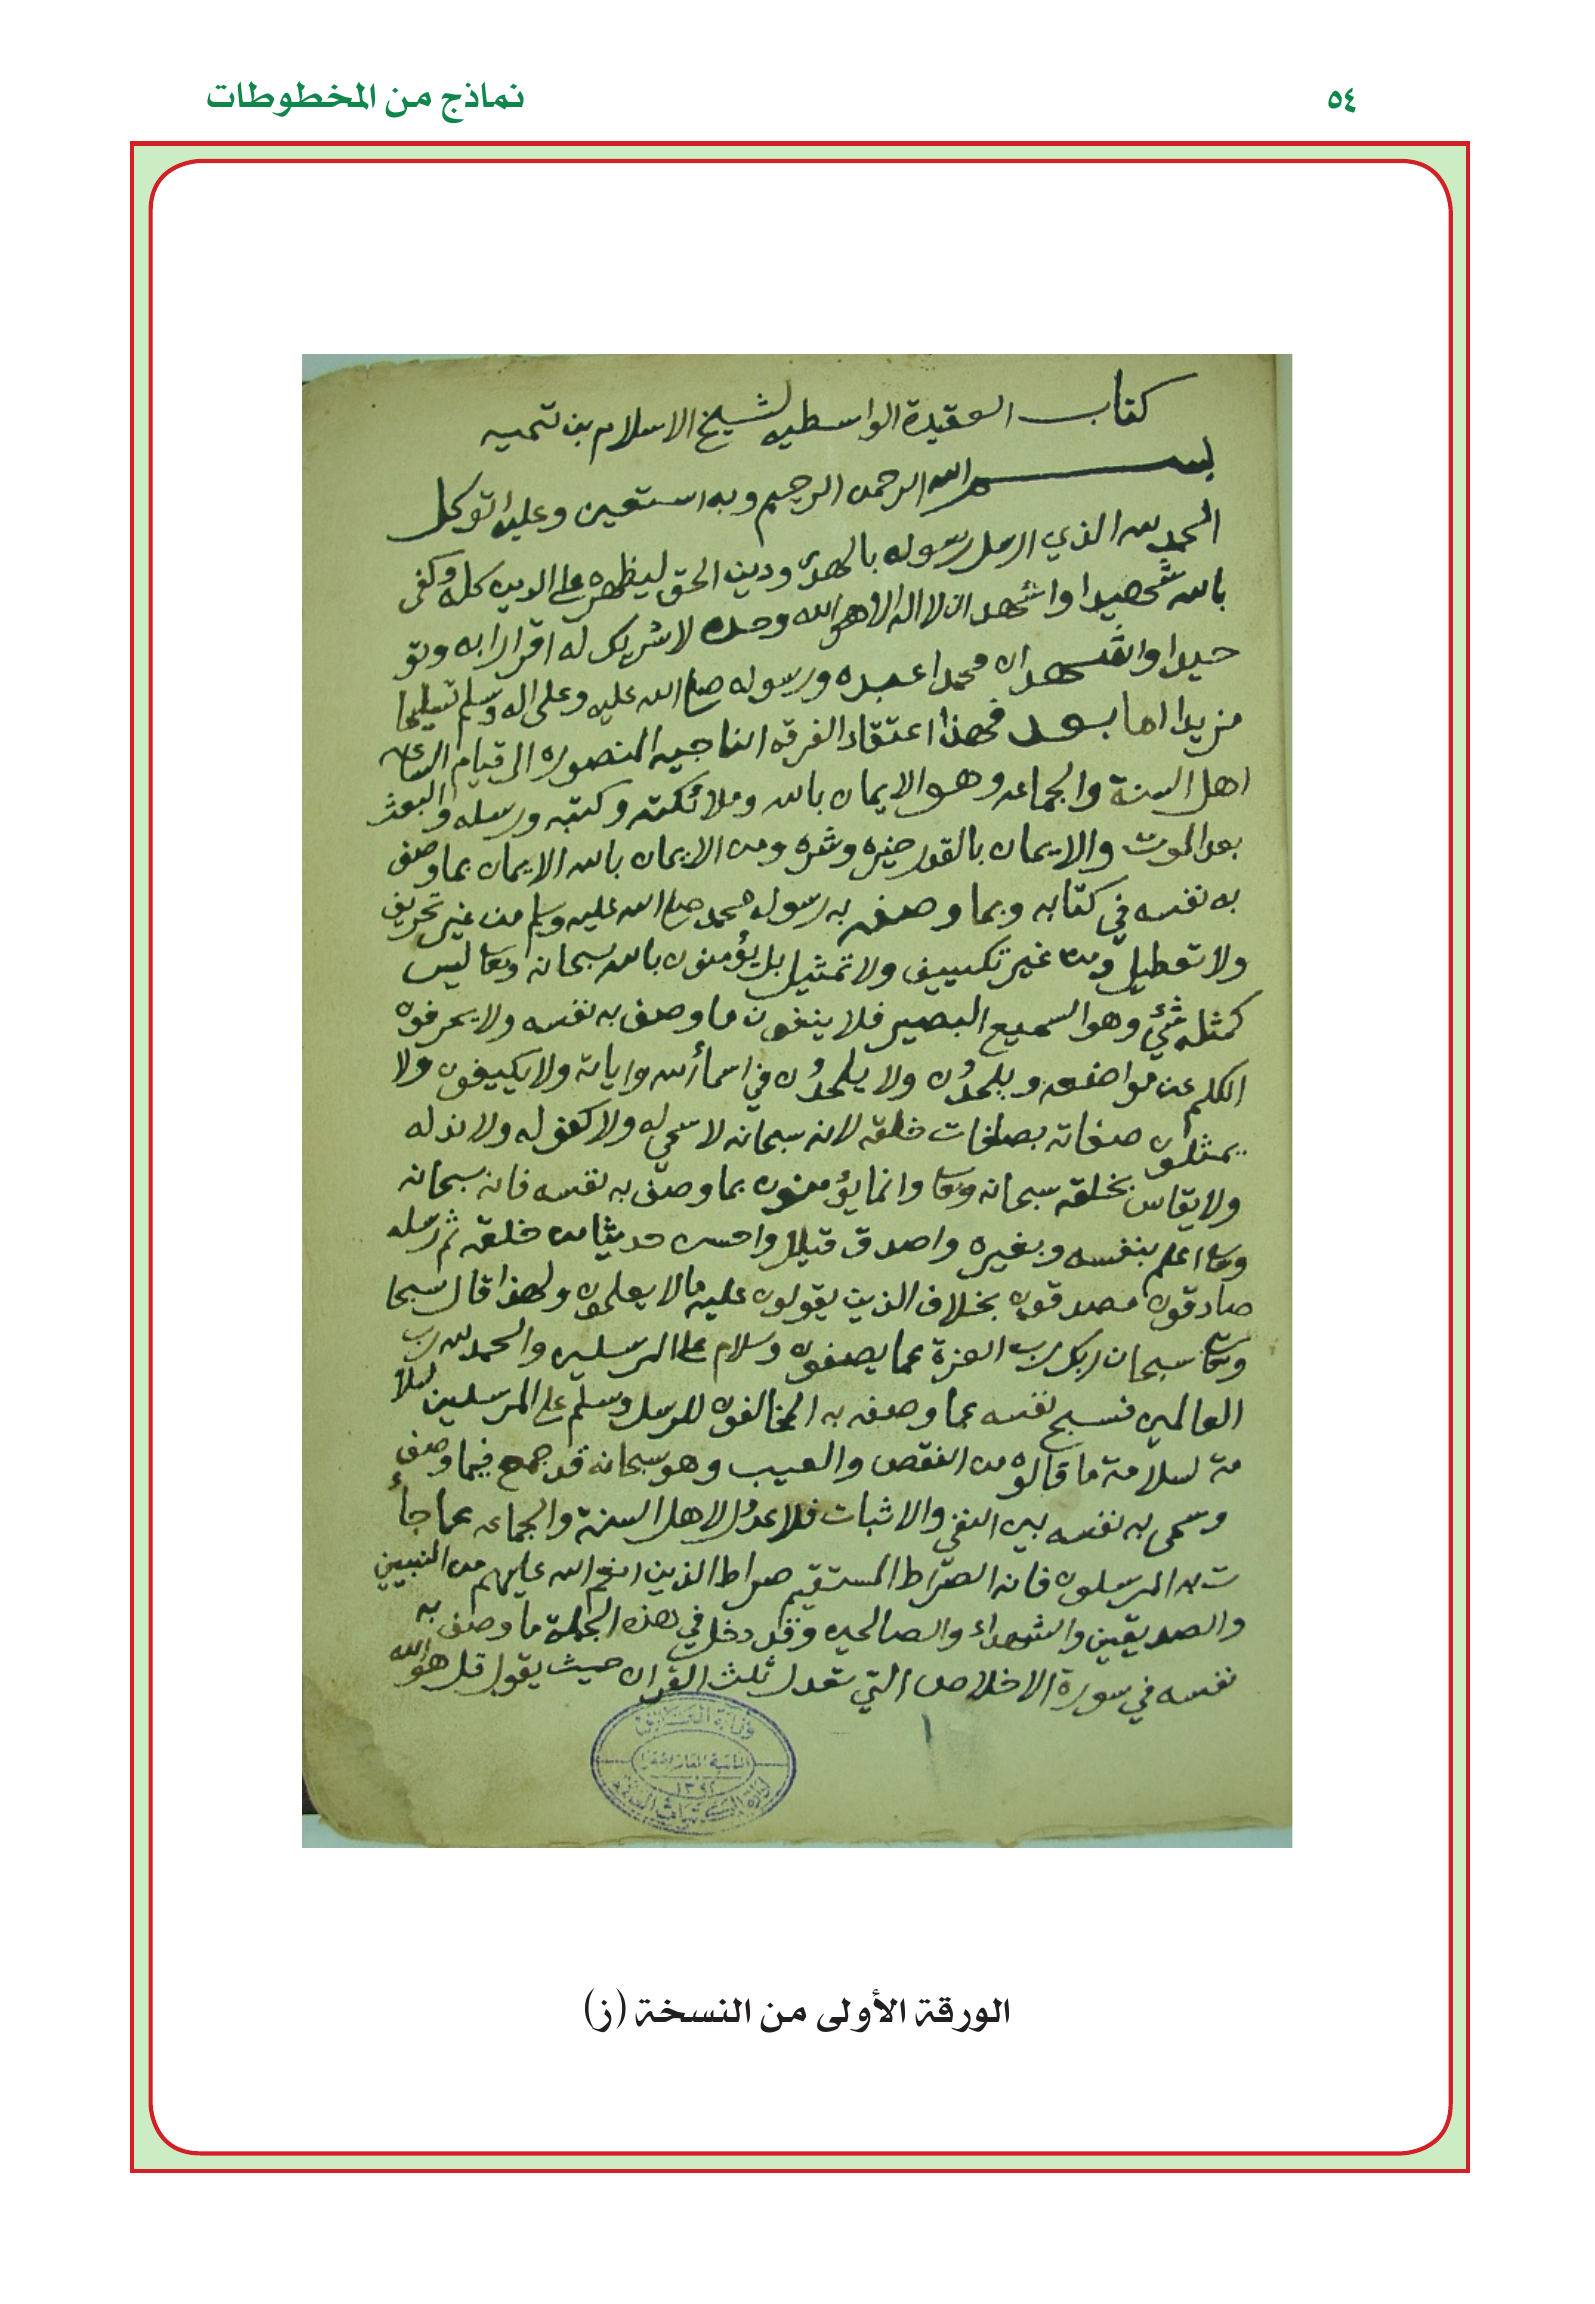 ٥٤
نماذج من المخطوطات
كتاب العقيدة الواسطيه لشيخ الاسلام بن تيميه
بسم الله الرحمن الرحيم وبه استعين وعليه اتوكل
الحمد لله الذي ارسل رسوله بالهدى ودين الحق ليظهره على الدين كله وكفى
بالله شهيدا واشهد ان لا اله الا هو الله وحده لا شريك له اقرارا به وتو
حيدا واشهد ان محمدا عبده ورسوله صلى الله عليه وعلى اله وسلم تسليما
مزيدا اما بعد فهذا اعتقاد الفرقه الناجيه المنصوره الى قيام الساعه
اهل السنة والجماعه وهو الايمان بالله وملائكته وكتبه ورسله والبعث
بعد الموت والايمان بالقدر خيره وشره ومن الايمان بالله الايمان بما وصف
به نفسه في كتابه وبما وصفه به رسوله محمد صلى الله عليه وسلم من غير تحريف
ولا تعطيل ومن غير تكييف ولا تمثيل بل يؤمنون بالله سبحانه وتعا ليس
كمثله شئ وهو السميع البصير فلا ينفون ما وصف به نفسه ولا يحرفون
الكلم عن مواضعه ولا يلحدون في اسماء الله واياته ولا يكيفون ولا
يمثلون صفاته بصفات خلقه لانه سبحانه لا سمي له ولا كفو له ولا ند له
ولا يقاس بخلقه سبحانه وتعا وانما يؤمنون بما وصف به نفسه فانه سبحانه
وتعا اعلم بنفسه وبغيره واصدق قيلا واحسن حديثا من خلقه ثم رسله
صادقون مصدقون بخلاف الذين يقولون عليه مالا يعلمون ولهذا قال سبحا
وتعا سبحان ربك رب العزة عما يصفون وسلام على المرسلين والحمد لله رب
العالمين فسبح نفسه عما وصفه به المخالفون للرسل وسلم على المرسلين لسلا
مة لسلامة ما قالوه من النقص والعيب وهو سبحانه قد جمع فيما وصف
وسمى به نفسه بين النفي والاثبات فلا عدول لاهل السنة والجماعه عما جاء
ت به المرسلون فانه الصراط المستقيم صراط الذين انعم الله عليهم من النبيين
والصديقين والشهداء والصالحين وقد دخل في هذه الجملة ما وصف به
نفسه في سورة الاخلاص التي تعدل ثلث القران حيث يقول قل هو الله
١٣٩٢
الورقة الأولى من النسخة (ز)